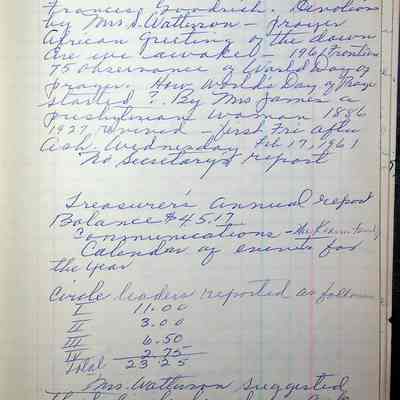 Frances Goodrich. Devotions
by Mrs. D. Watterson - prayer
African Greeting of the dawn
Are you awake! - 1961 Frontier
75 observance of World Day of
prayer. How World's Day of Prayer
started? - By Mrs James a
presbyterian woman 1886
1927 Revived - first Fri after
Ash Wednesday Feb 17, 1961
No Secretary's report
Treasurer's Annual report
Balance $45.17
Communications - The
Calendar of events for
the year
Circle leaders reported as follows
I 11.00
II 3.00
III 6.50
IV 2.75
Total 23.25
Mrs. Watterson suggested